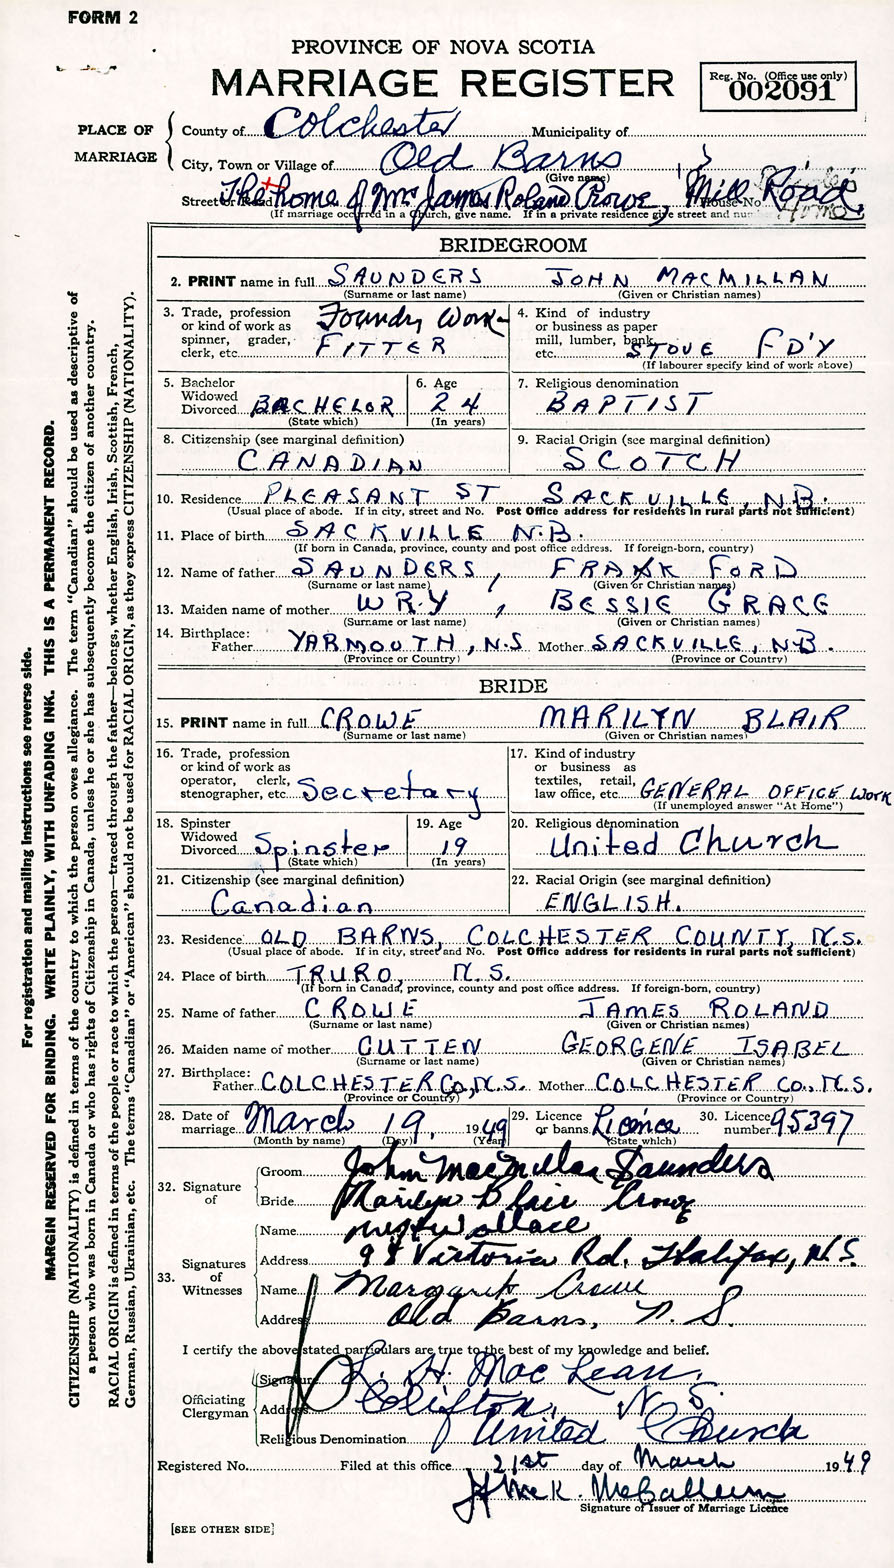 FORM 2
PROVINCE OF NOVA SCOTIA
MARRIAGE REGISTER
Reg. No. (Office use only)
002091
PLACE OF MARRIAGE
County of Colchester Municipality of
City, Town or Village of Old Barns
(Give name)
Street or Road The home of Mr James Roland Crowe, Mill Road House No
(If marriage occurred in a Church, give name. If in a private residence give street and
BRIDEGROOM
2. PRINT name in full SAUNDERS JOHN MACMILLAN
(Surname or last name) (Given or Christian names)
3. Trade, profession or kind of work as spinner, grader, clerk, etc. Foundry Work FITTER
4. Kind of industry or business as paper mill, lumber, bank, etc. STOVE FD'Y
(If labourer specify kind of work above)
5. Bachelor Widowed Divorced BACHELOR
(State which)
6. Age 24
(In years)
7. Religious denomination BAPTIST
8. Citizenship (see marginal definition) CANADIAN
9. Racial Origin (see marginal definition) SCOTCH
10. Residence PLEASANT ST SACKVILLE, N.B.
(Usual place of abode. If in city, street and No. Post Office address for residents in rural parts not sufficient)
11. Place of birth SACKVILLE N.B.
(If born in Canada, province, county and post office address. If foreign-born, country)
12. Name of father SAUNDERS, FRANK FORD
(Surname or last name) (Given or Christian names)
13. Maiden name of mother WRY, BESSIE GRACE
(Surname or last name) (Given or Christian names)
14. Birthplace: Father YARMOUTH, N.S Mother SACKVILLE, N.B.
(Province or Country) (Province or Country)
BRIDE
15. PRINT name in full CROWE MARILYN BLAIR
(Surname or last name) (Given or Christian names)
16. Trade, profession or kind of work as operator, clerk, stenographer, etc. Secretary
17. Kind of industry or business as textiles, retail, law office, etc. GENERAL OFFICE WORK
(If unemployed answer "At Home")
18. Spinster Widowed Divorced Spinster
(State which)
19. Age 19
(In years)
20. Religious denomination United Church
21. Citizenship (see marginal definition) Canadian
22. Racial Origin (see marginal definition) ENGLISH.
23. Residence OLD BARNS, COLCHESTER COUNTY, N.S.
(Usual place of abode. If in city, street and No. Post Office address for residents in rural parts not sufficient)
24. Place of birth TRURO, N.S.
(If born in Canada, province, county and post office address. If foreign-born, country)
25. Name of father CROWE JAMES ROLAND
(Surname or last name) (Given or Christian names)
26. Maiden name of mother CUTTEN GEORGENE ISABEL
(Surname or last name) (Given or Christian names)
27. Birthplace: Father COLCHESTER Co., N.S. Mother COLCHESTER Co., N.S.
(Province or Country) (Province or Country)
28. Date of marriage March 19, 1949
(Month by name) (Day) (Year)
29. Licence or banns Licence
(State which)
30. Licence number 95397
32. Signature of
Groom John MacMillan Saunders
Bride Marilyn Blair Crowe
33. Signatures of Witnesses
Name Wallace
Address 98 Victoria Rd, Halifax, N.S.
Name Margaret Crowe
Address Old Barns, N.S.
I certify the above stated particulars are true to the best of my knowledge and belief.
Officiating Clergyman
Signature L. H. MacLean,
Address Clifton, N.S.
Religious Denomination United Church
Registered No. Filed at this office 21st day of March 1949
McK. McCallum
Signature of Issuer of Marriage Licence
[SEE OTHER SIDE]
For registration and mailing instructions see reverse side.
MARGIN RESERVED FOR BINDING. WRITE PLAINLY, WITH UNFADING INK. THIS IS A PERMANENT RECORD.
CITIZENSHIP (NATIONALITY) is defined in terms of the country to which the person owes allegiance. The term "Canadian" should be used as descriptive of
a person who was born in Canada or who has rights of Citizenship in Canada, unless he or she has subsequently become the citizen of another country.
RACIAL ORIGIN is defined in terms of the people or race to which the person—traced through the father—belongs, whether English, Irish, Scottish, French,
German, Russian, Ukrainian, etc. The terms "Canadian" or "American" should not be used for RACIAL ORIGIN, as they express CITIZENSHIP (NATIONALITY).